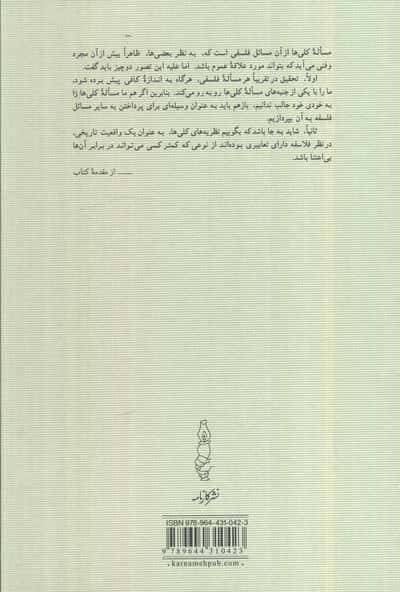 مسألهٔ کلی‌ها از آن مسائل فلسفی است که، به نظر بعضی‌ها، ظاهراً بیش از آن مجرد
وفنی می‌آید که بتواند مورد علاقهٔ عموم باشد. اما علیه این تصور دو چیز باید گفت.
اولاً، تحقیق در تقریباً هر مسألهٔ فلسفی، هرگاه به اندازهٔ کافی پیش برده شود،
ما را با یکی از جنبه‌های مسألهٔ کلی‌ها رو به رو می‌کند. بنابرین اگر هم ما مسألهٔ کلی‌ها را
به خودی خود جالب ندانیم، بازهم باید به عنوان وسیله‌ای برای پرداختن به سایر مسائل
فلسفه به آن بپردازیم.
ثانیاً، شاید به جا باشد که بگوییم نظریه‌های کلی‌ها، به عنوان یک واقعیت تاریخی،
در نظر فلاسفه دارای تعابیری بوده‌اند از نوعی که کمتر کسی می‌تواند در برابر آن‌ها
بی‌اعتنا باشد.
—— از مقدمهٔ کتاب
نشر کارنامه
ISBN 978-964-431-042-3
9 789644 310423
karnamehpub.com